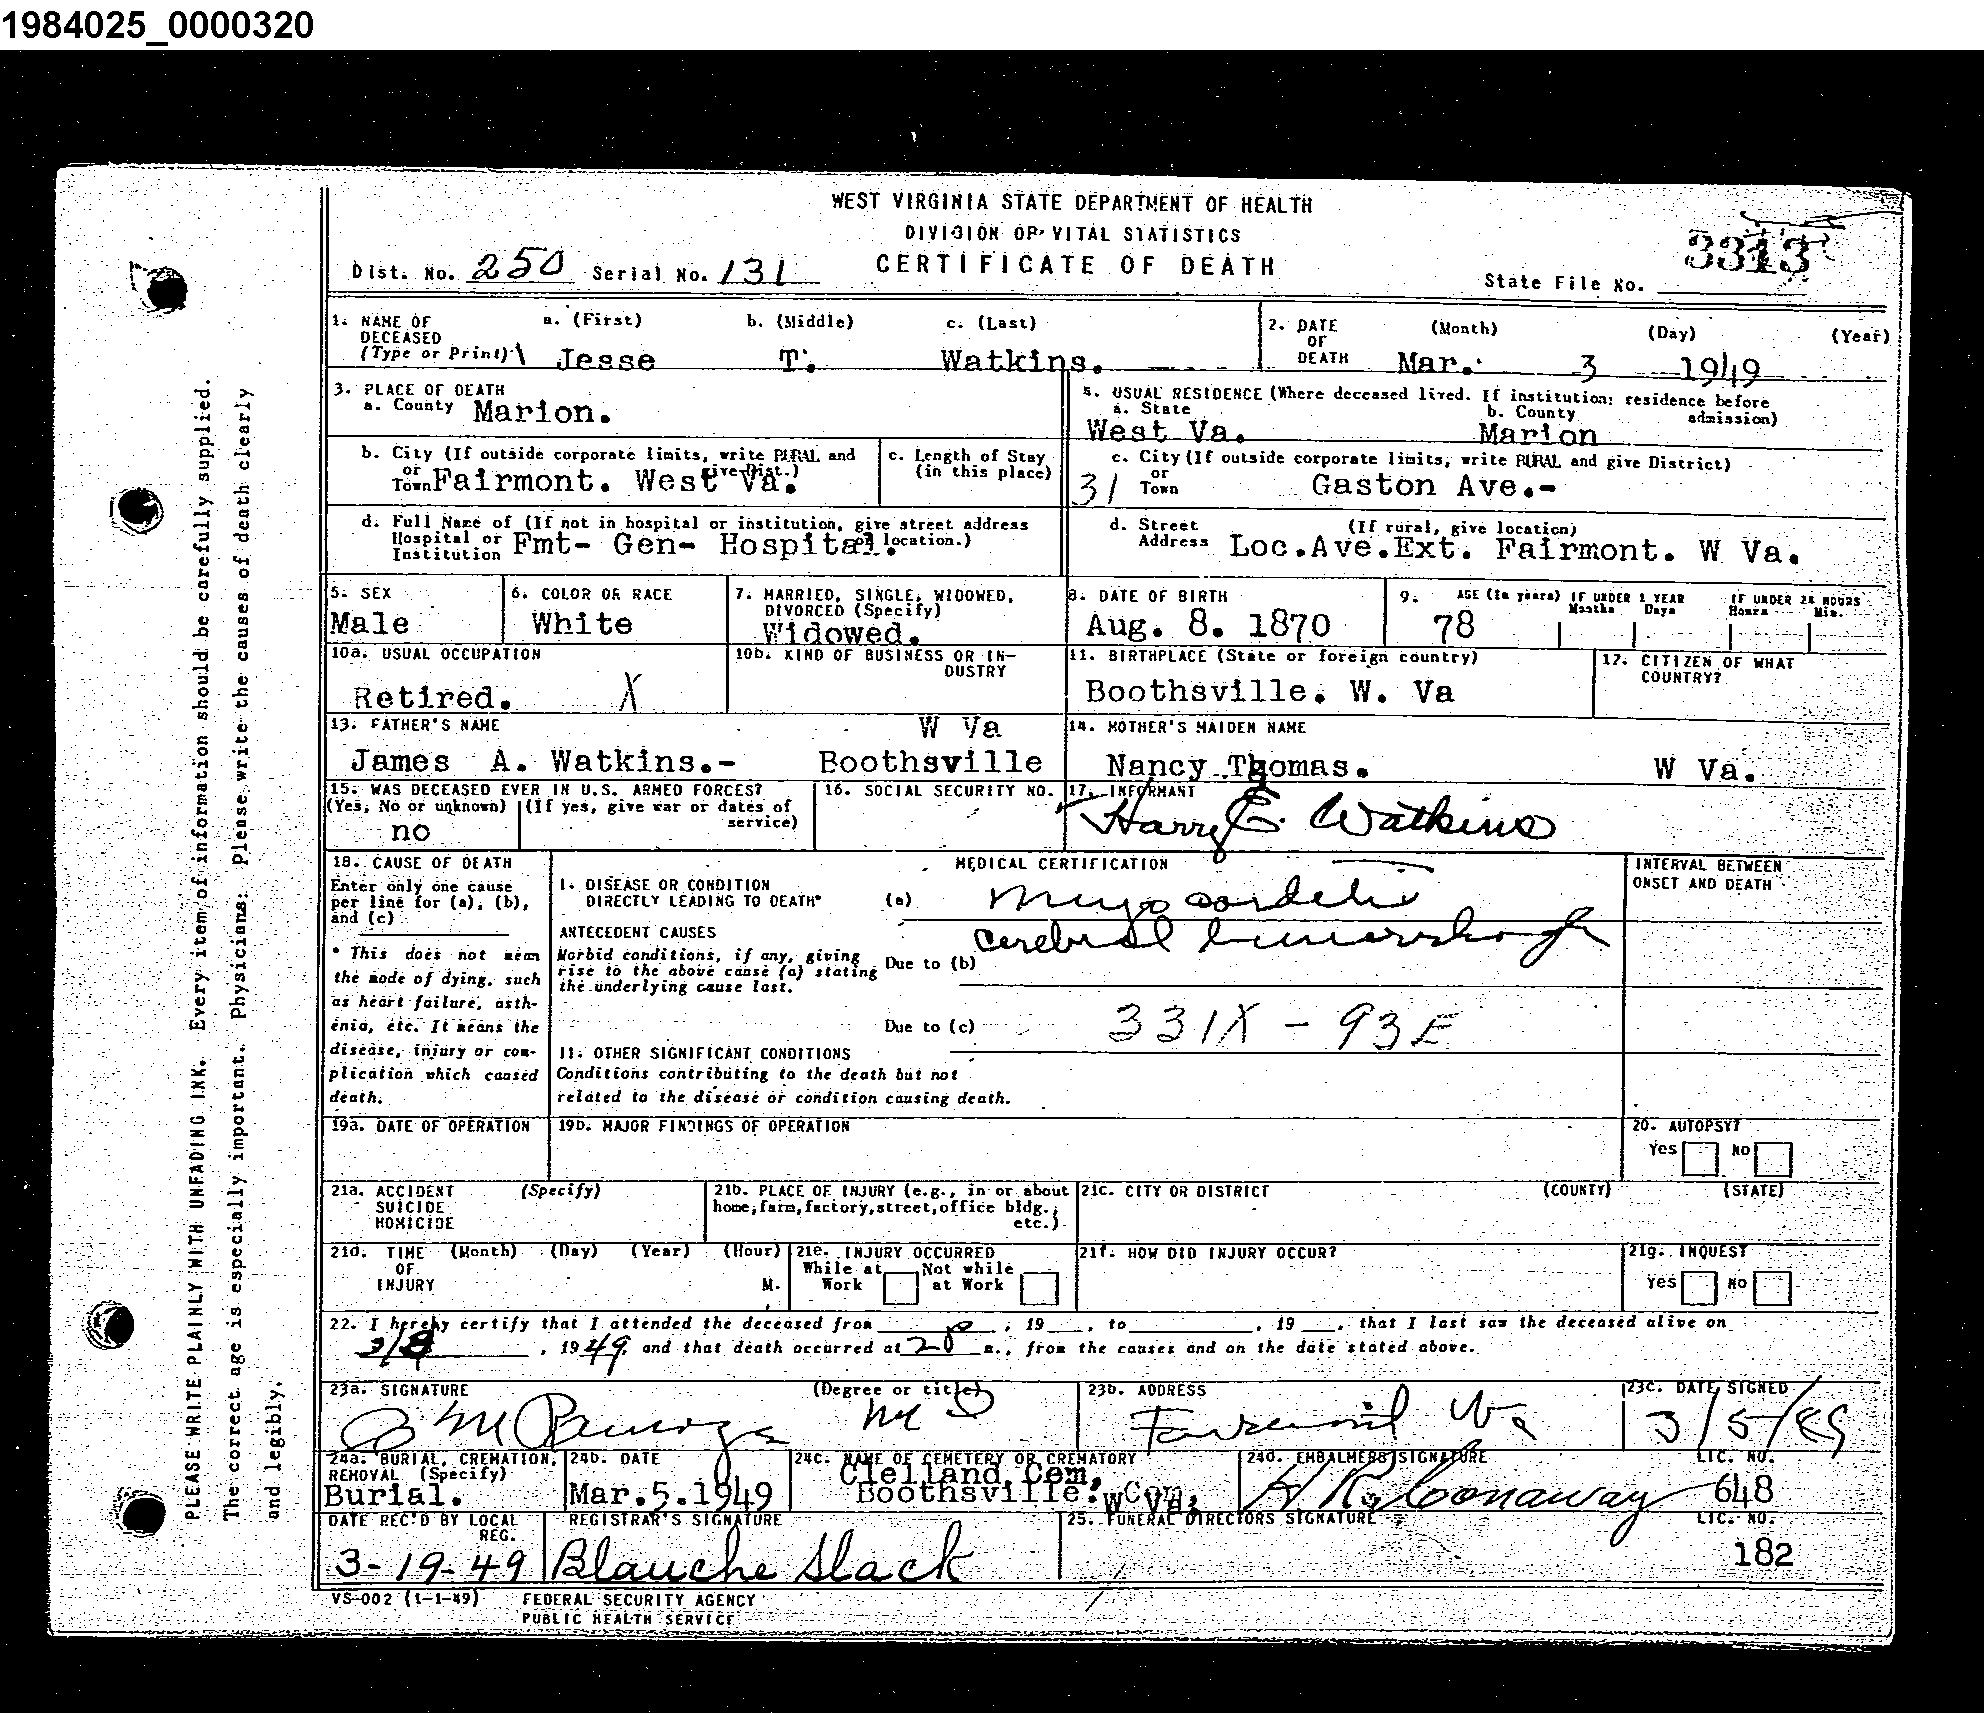 1984025_0000320
WEST VIRGINIA STATE DEPARTMENT OF HEALTH
DIVISION OF VITAL STATISTICS
CERTIFICATE OF DEATH
Dist. No. 250 Serial No. 131
State File No. 3313
1. NAME OF DECEASED (Type or Print) a. (First) b. (Middle) c. (Last)
Jesse T. Watkins.
2. DATE OF DEATH (Month) (Day) (Year)
Mar. 3 1949
3. PLACE OF DEATH
a. County Marion.
4. USUAL RESIDENCE (Where deceased lived. If institution: residence before admission)
a. State b. County
West Va. Marion
b. City (If outside corporate limits, write RURAL and give Dist.)
or Town Fairmont. West Va.
c. Length of Stay (in this place)
c. City (If outside corporate limits, write RURAL and give District)
or Town 31 Gaston Ave.-
d. Full Name of (If not in hospital or institution, give street address or location.)
Hospital or Institution Fmt- Gen- Hospital.
d. Street Address (If rural, give location)
Loc.Ave.Ext. Fairmont. W Va.
5. SEX
Male
6. COLOR OR RACE
White
7. MARRIED, SINGLE, WIDOWED, DIVORCED (Specify)
Widowed.
8. DATE OF BIRTH
Aug. 8. 1870
9. AGE (In years) IF UNDER 1 YEAR Months Days IF UNDER 24 HOURS Hours Min.
78
10a. USUAL OCCUPATION
Retired. X
10b. KIND OF BUSINESS OR INDUSTRY
11. BIRTHPLACE (State or foreign country)
Boothsville. W. Va
12. CITIZEN OF WHAT COUNTRY?
13. FATHER'S NAME
W Va
James A. Watkins.- Boothsville
14. MOTHER'S MAIDEN NAME
Nancy Thomas. W Va.
15. WAS DECEASED EVER IN U.S. ARMED FORCES?
(Yes, No or unknown) (If yes, give war or dates of service)
no
16. SOCIAL SECURITY NO.
17. INFORMANT
Harry E. Watkins
18. CAUSE OF DEATH
Enter only one cause per line for (a), (b), and (c)
* This does not mean the mode of dying, such as heart failure, asthenia, etc. It means the disease, injury or complication which caused death.
MEDICAL CERTIFICATION
INTERVAL BETWEEN ONSET AND DEATH
1. DISEASE OR CONDITION DIRECTLY LEADING TO DEATH* (a) myocarditis
ANTECEDENT CAUSES
Morbid conditions, if any, giving rise to the above cause (a) stating the underlying cause last.
Due to (b) cerebral hemorrhage
Due to (c) 331X - 93E
11. OTHER SIGNIFICANT CONDITIONS
Conditions contributing to the death but not related to the disease or condition causing death.
19a. DATE OF OPERATION
19b. MAJOR FINDINGS OF OPERATION
20. AUTOPSY?
Yes No
21a. ACCIDENT SUICIDE HOMICIDE (Specify)
21b. PLACE OF INJURY (e.g., in or about home, farm, factory, street, office bldg., etc.)
21c. CITY OR DISTRICT (COUNTY) (STATE)
21d. TIME OF INJURY (Month) (Day) (Year) (Hour) M.
21e. INJURY OCCURRED
While at Work Not while at Work
21f. HOW DID INJURY OCCUR?
21g. INQUEST
Yes No
22. I hereby certify that I attended the deceased from , 19 , to , 19 , that I last saw the deceased alive on
, 1949, and that death occurred at m., from the causes and on the date stated above.
23a. SIGNATURE (Degree or title)
M D
23b. ADDRESS
Fairmont W Va
23c. DATE SIGNED
3/5/49
24a. BURIAL, CREMATION, REMOVAL (Specify)
Burial.
24b. DATE
Mar.5.1949
24c. NAME OF CEMETERY OR CREMATORY
Clelland Cem.
Boothsville. W Va.
24d. EMBALMERS SIGNATURE LIC. NO.
H R Conaway 648
DATE REC'D BY LOCAL REG.
3-19-49
REGISTRAR'S SIGNATURE
Blanche Slack
25. FUNERAL DIRECTORS SIGNATURE LIC. NO.
182
VS-002 (1-1-49) FEDERAL SECURITY AGENCY
PUBLIC HEALTH SERVICE
PLEASE WRITE PLAINLY WITH UNFADING INK. Every item of information should be carefully supplied.
The correct age is especially important. Physicians: please write the causes of death clearly
and legibly.